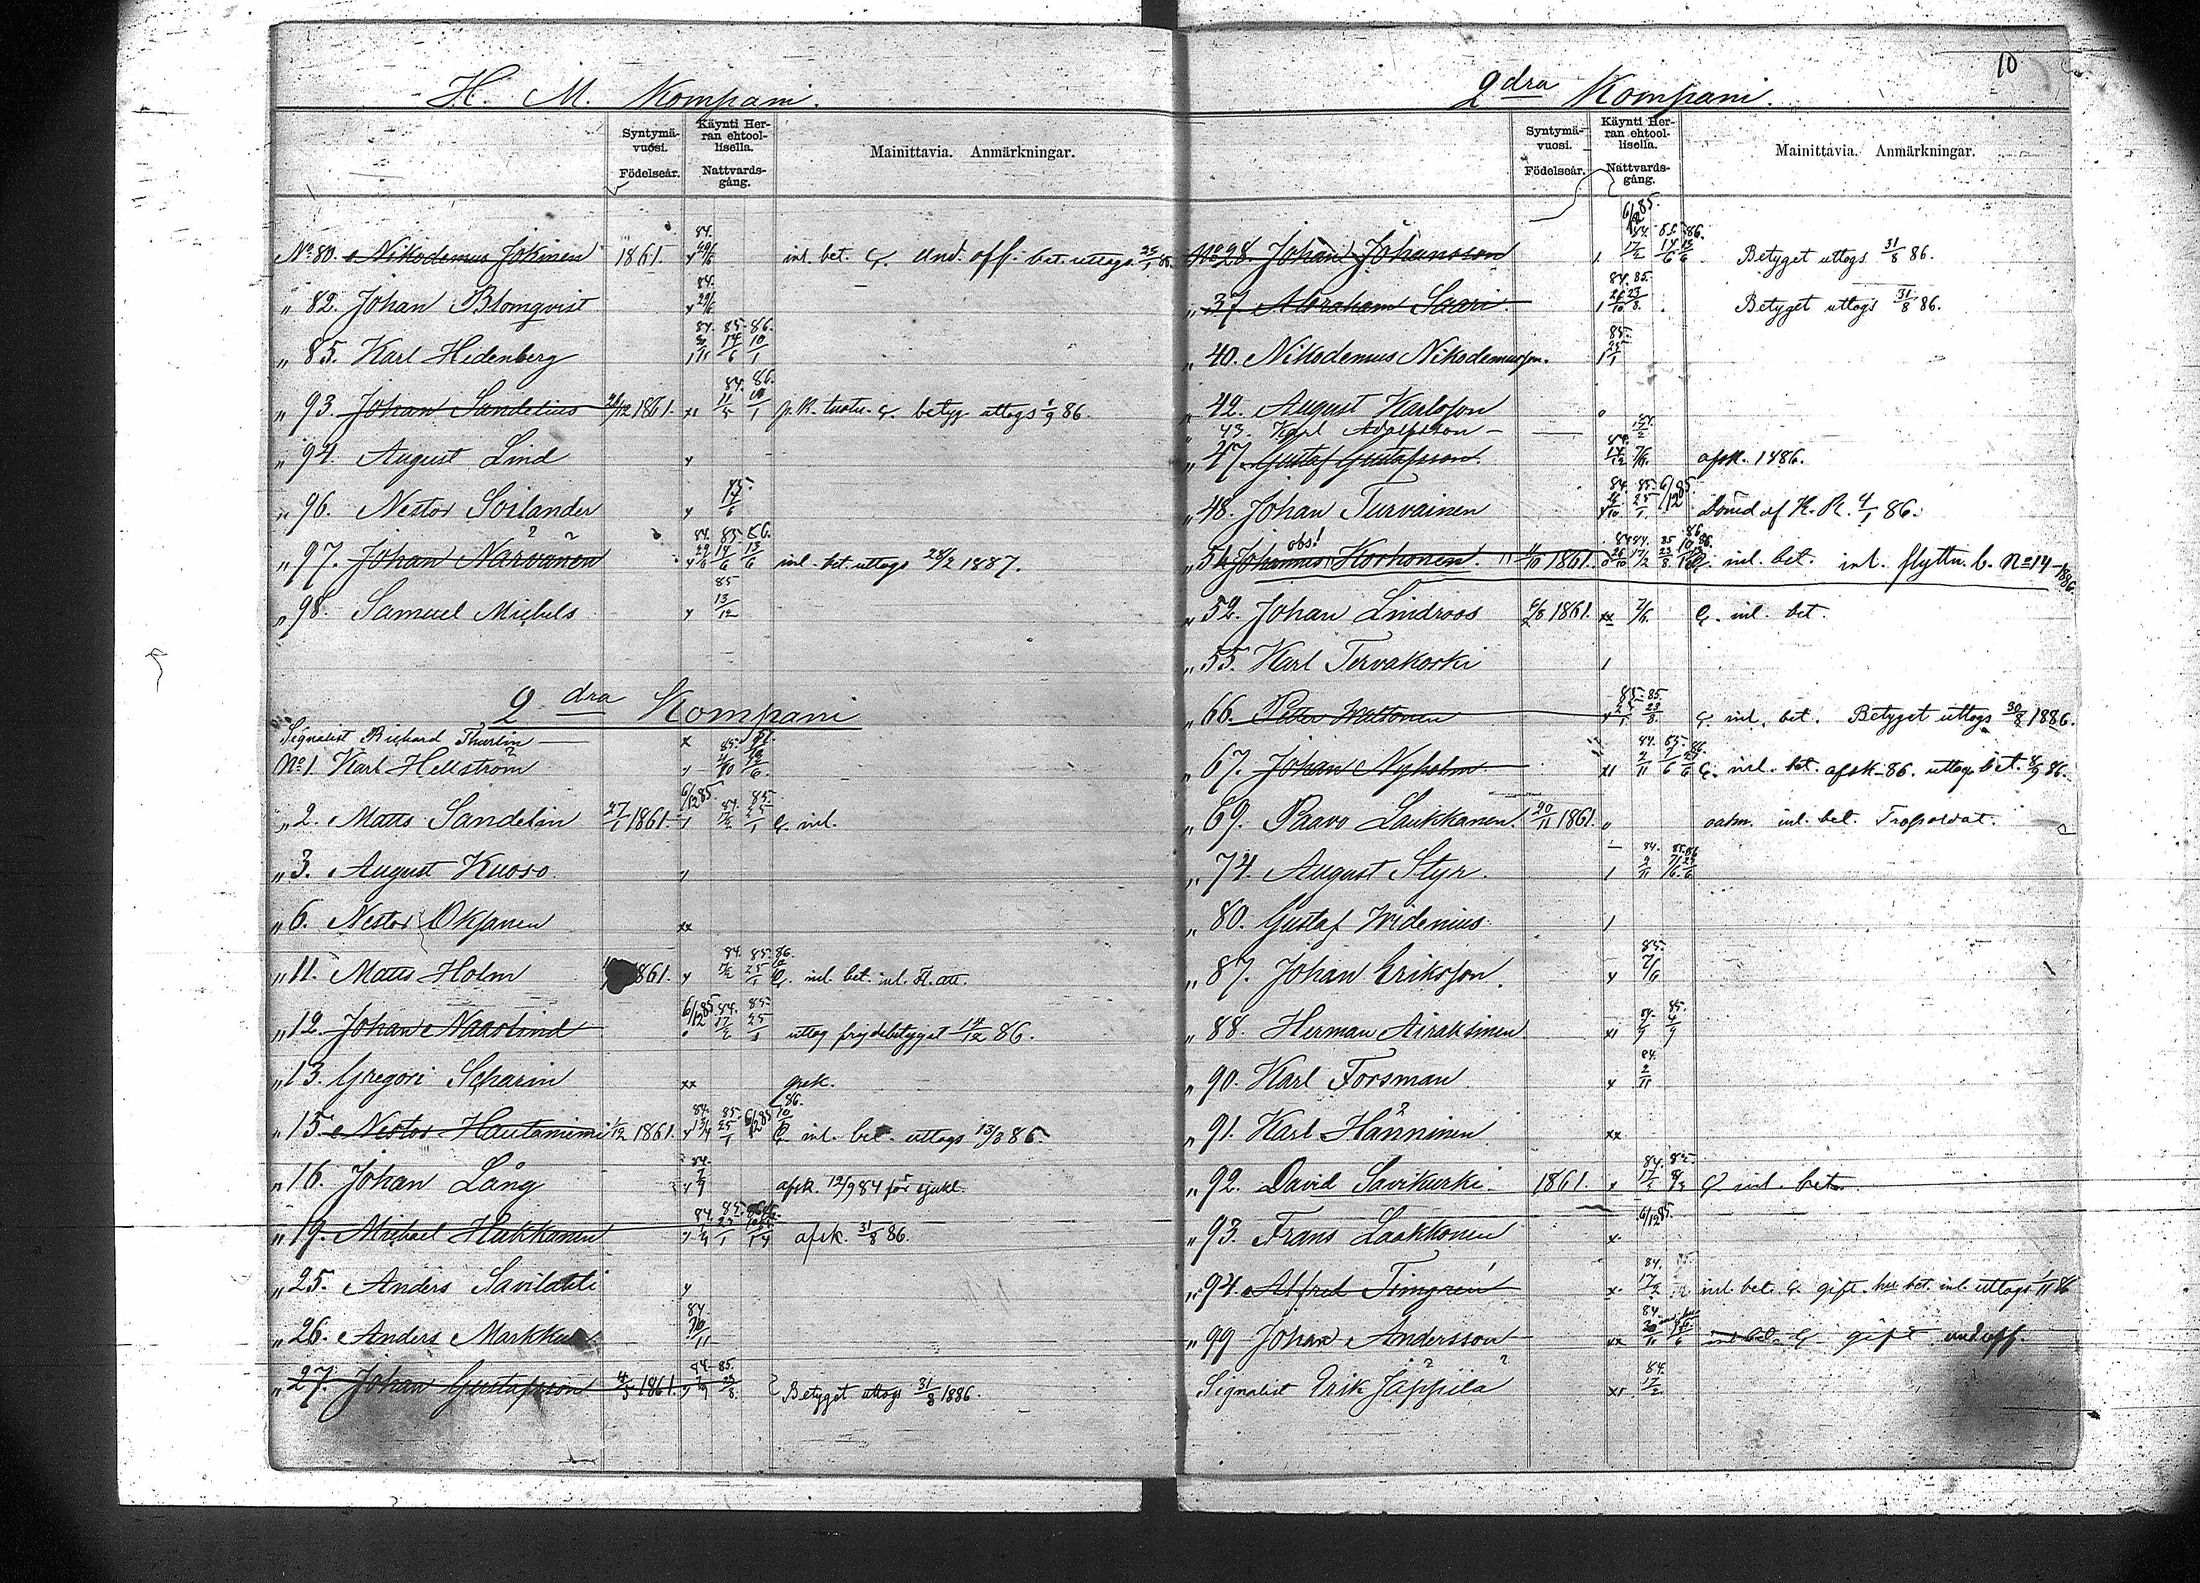 H. M. Kompani.
Syntymä-vuosi. Födelseår.
Käynti Herran ehtoollisella. Nattvardsgång.
Mainittavia. Anmärkningar.
No. 80. Nikodemus Jokinen 1861. y 84. 29/6 inl. bet. Und. off. bet. uttogs
" 82. Johan Blomqvist y 84. 29/6
" 85. Karl Hedenberg 84. 85. 86. 14/6 10/1
" 93. Johan Sandelius 1861. 84. 86. 11/5 10/1 betyg uttogs 86.
" 94. August Lind y
" 96. Nestor Soilander y 85.
" 97. Johan Narvanen y 84. 85. 86. 29/6 14/6 13/6 inl. bet. uttogs 28/2 1887.
" 98. Samuel Michels y 85 13/12
2 dra Kompani
Signalist Richard Thurlin x
No 1. Karl Hellström
" 2. Matts Sandelin 27/1 1861. 6/12 85. inl.
" 3. August Kuoso
" 6. Nestor Oksanen xx
" 11. Matts Holm 1861. y 84. 85. 86. inl. bet. inl. fl. att.
" 12. Johan Naaslind 6/12 85. 84. 85. 17/2 25/1 uttog frejdebetyget 86.
" 13. Gregori Scharin xx grek.
" 15. Nestor Hautaniemi 1/12 1861. y 84. 85. 6/12 85 86. 10/1 inl. bet. uttogs 13/8 86.
" 16. Johan Lång 84. afsk. 12/9 84 för sjukl.
" 19. Michael Hakkanen 84. 85. afsk. 31/8 86.
" 25. Anders Savilahti y
" 26. Anders Markkula 84.
" 27. Johan Gustafsson 4/5 1861. 84. 85. Betyget uttogs 31/8 1886.
10
2 dra Kompani.
Syntymä-vuosi. Födelseår.
Käynti Herran ehtoollisella. Nattvardsgång.
Mainittavia. Anmärkningar.
No 28. Johan Johansson 6/12 85. 84. 85. 86. 17/2 14/6 13/6 Betyget uttogs 31/8 86.
" 37. Abraham Saari. 84. 85. 23/8. Betyget uttogs 31/8 86.
" 40. Nikodemus Nikodemusson. 85. 25/1
" 42. August Karlsson o
" 43. Karl Adolfsson
" 47. Gustaf Gustafsson. 84. 7/6 afsk. 1886.
" 48. Johan Turvainen 84. 85. 6/12 85. 25/1 Dömd af K. R. 4/1 86.
" 51. Johannes Korhonen. obs! 1861. inl. bet. inl. flyttn. b. No 14 1886.
" 52. Johan Lindroos 1861. xx 7/6. inl. bet.
" 55. Karl Tervakoski
" 66. Petter Wattonen 85. 85. 25/1 23/8. inl. bet. Betyget uttogs 30/8 1886.
" 67. Johan Nyholm 84. 85. 86. inl. bet. afsk. 86. uttog bet. 86.
" 69. Paavo Laukkanen. 20/11 1861. o inl. bet.
" 74. August Styr. 84. 85. 86
" 80. Gustaf Widenius.
" 87. Johan Eriksson. y 85. 7/6
" 88. Herman Airaksinen 84. 85.
" 90. Karl Forsman y 84. 2/11
" 91. Karl Hänninen xx.
" 92. David Savikurki. 1861. x 84. 85. inl. bet.
" 93. Frans Laakkonen x. 6/12 85.
" 94. Alfred Timgren x. 84. 17/2 inl. bet. gift. bet. inl. uttogs 86
" 99. Johan Andersson xx 84. gift und off.
Signalist Erik Jäppilä 84. 17/2